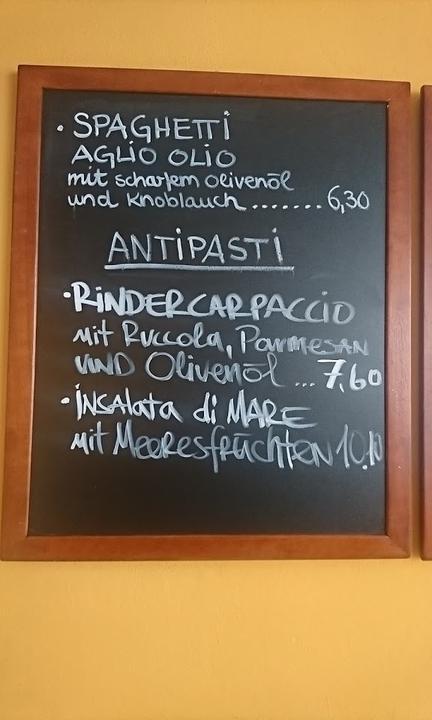 • SPAGHETTI
AGLIO OLIO
mit scharfem olivenöl
und Knoblauch ....... 6,30
ANTIPASTI
• RINDERCARPACCIO
mit Ruccola, Parmesan
und Olivenöl ... 7,60
• insalata di MARE
mit Meeresfrüchten 10,10